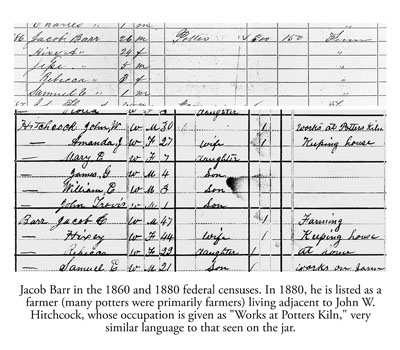 Charles " 1 m
Jacob Barr 26 m Potter $ 200 150 Tenn
Hixy A " 24 f "
Jesse " 5 m "
Rebecca 3 f "
Samuel E " 1 m "
daughter
Hitchcock John, W W M 30 1 Works at Potters Kiln
— Amanda, J W F 27 wife 1 Keeping house
— Mary E W F 7 daughter
— James, G W M 4 Son
— William, E W M 3 Son
— John Travis W M Son
Barr Jacob C W M 47 1 Farming
— Hixey W F 44 wife 1 Keeping house
— Rebecca W F 22 daughter 1 at home
— Samuel E W M 21 Son 1 works on farm
Jacob Barr in the 1860 and 1880 federal censuses. In 1880, he is listed as a
farmer (many potters were primarily farmers) living adjacent to John W.
Hitchcock, whose occupation is given as "Works at Potters Kiln," very
similar language to that seen on the jar.